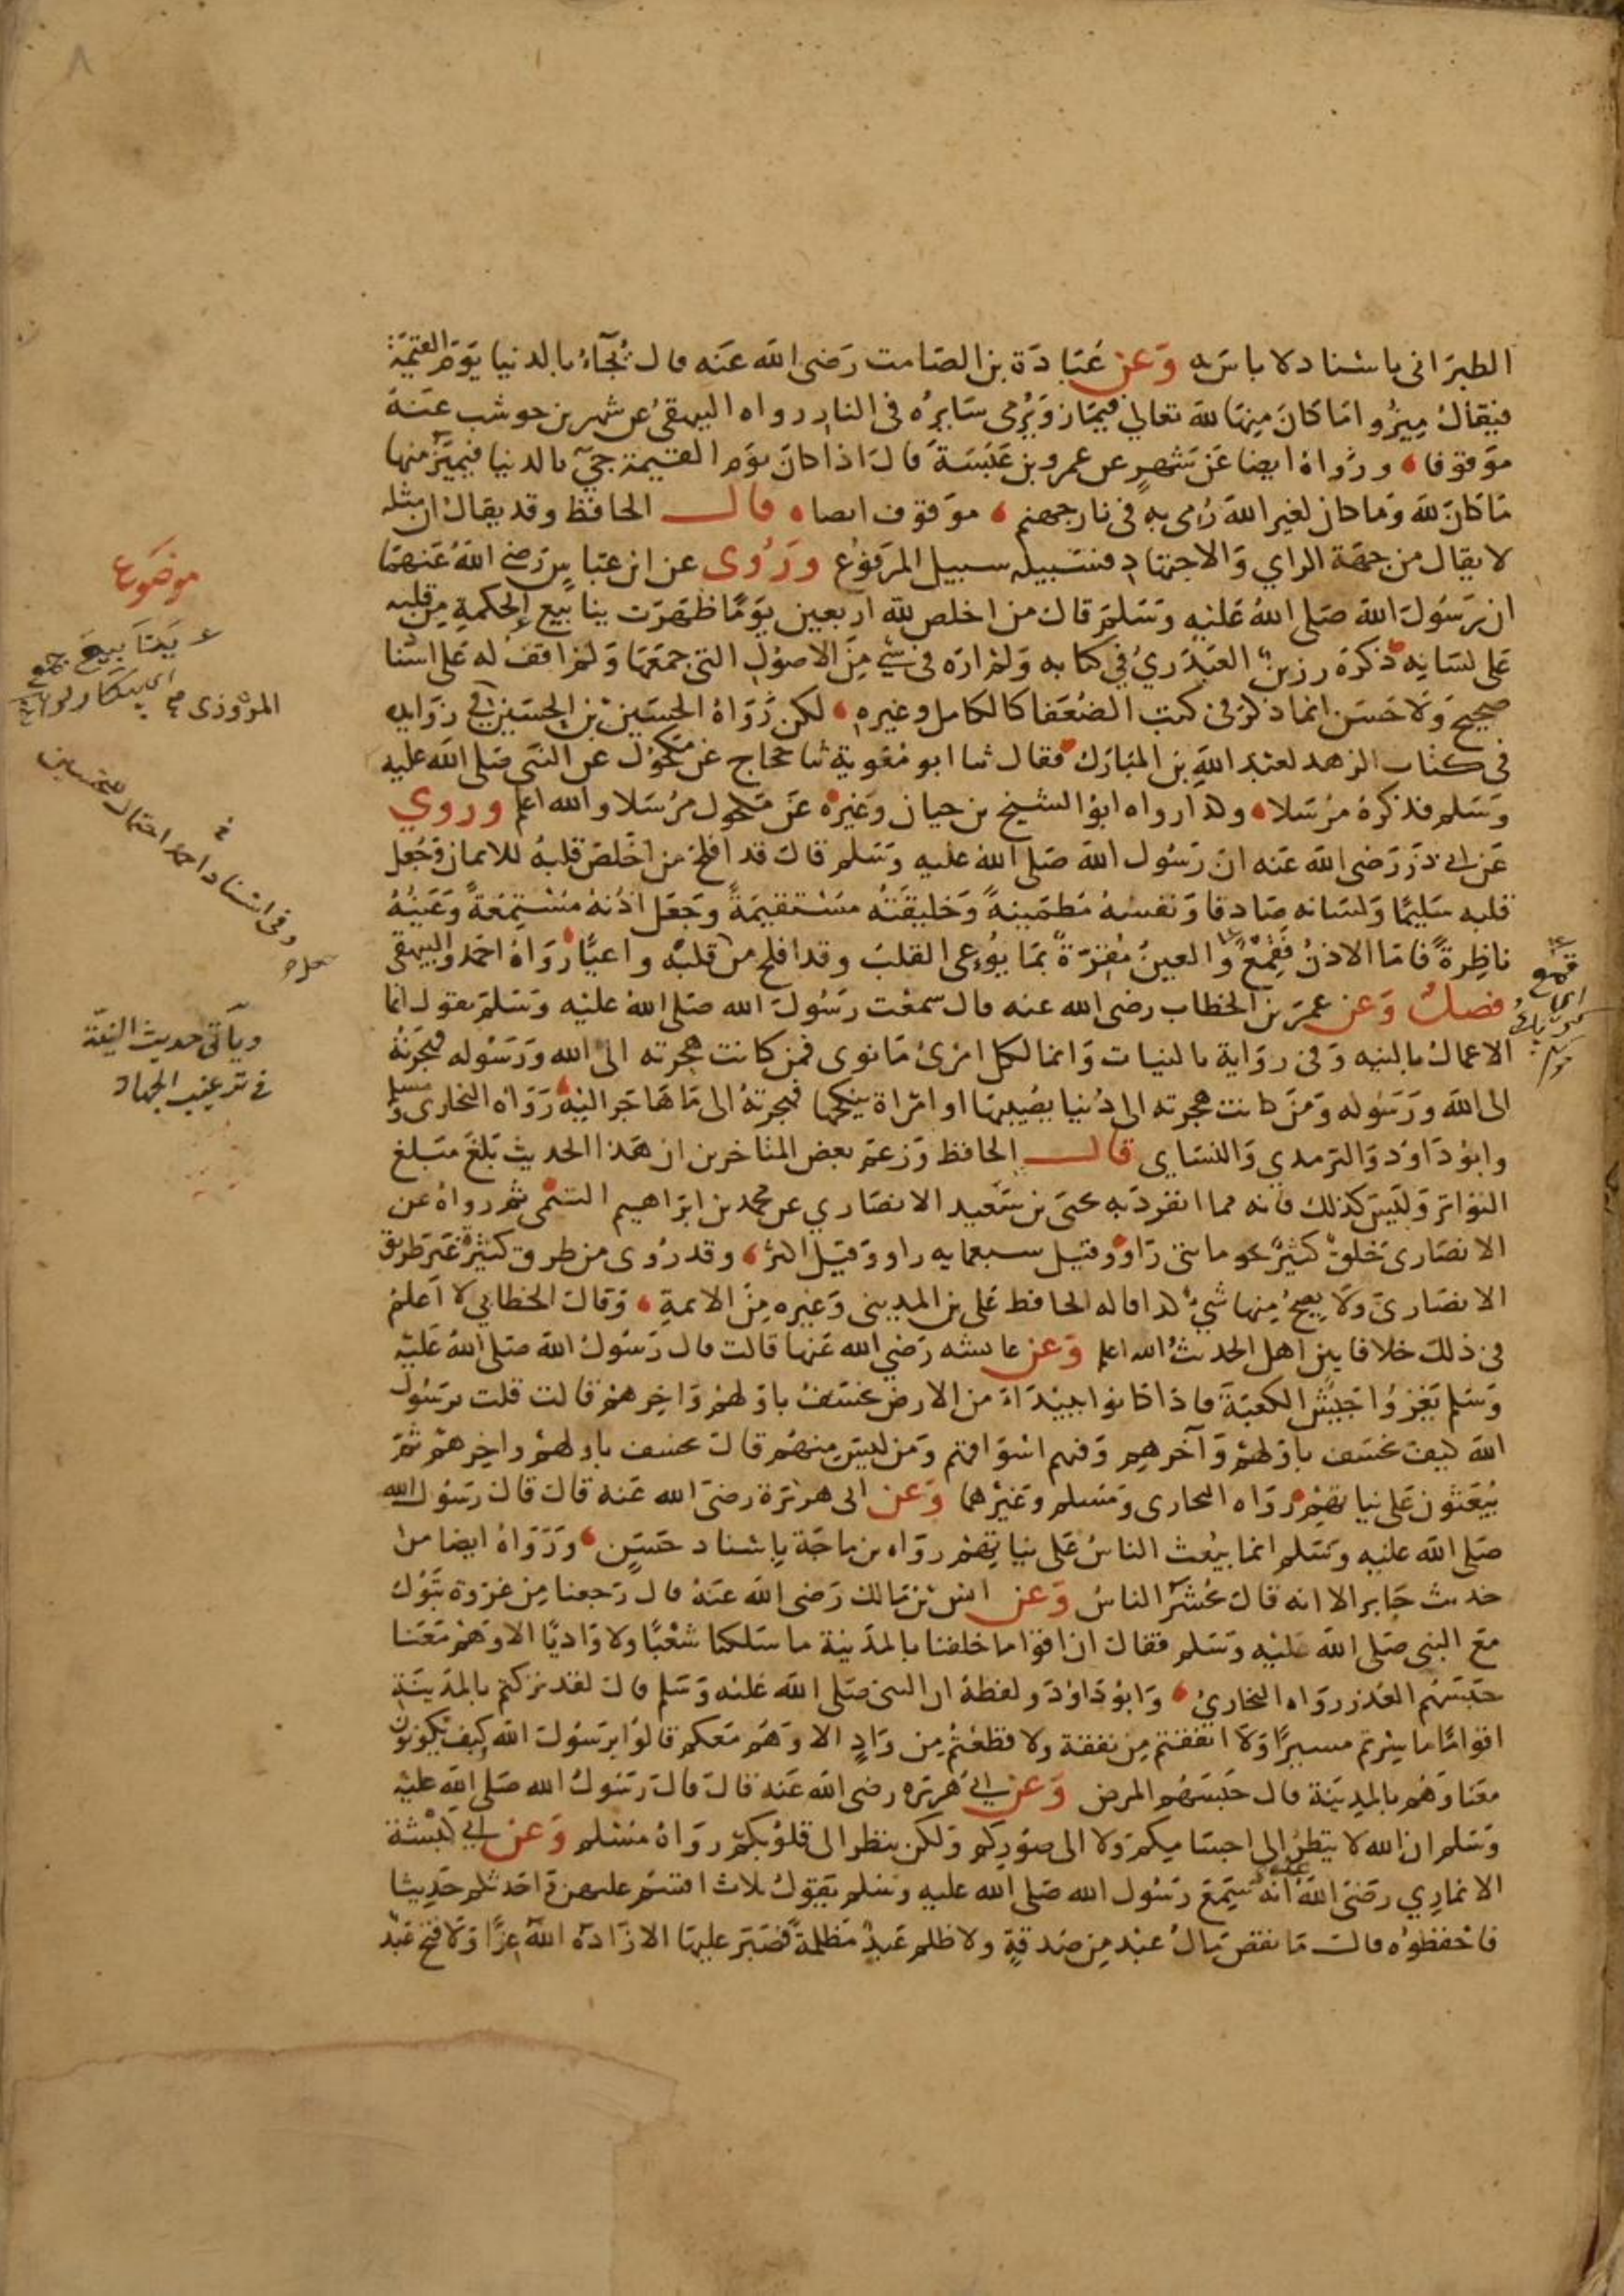 ٨
الطبراني باسناد لا باس به وعن عبادة بن الصامت رضي الله عنه قال يجآء بالدنيا يوم القيمة
فيقال ميزوا ما كان منها لله تعالى فيماز ويرمى سايره في النار رواه البيهقي عن شهر بن حوشب عنه
موقوفا ورواه ايضا عن شهر عن عمرو بن عبسة قال اذا كان يوم القيمة جيء بالدنيا فيميز منها
ما كان لله وما كان لغير الله رمى به في نار جهنم موقوف ايضا قال الحافظ وقد يقال ان مثله
لا يقال من جهة الراي والاجتهاد فسبيله سبيل المرفوع وروى عن ابن عباس رضي الله عنهما
ان رسول الله صلى الله عليه وسلم قال من اخلص لله اربعين يوما ظهرت ينابيع الحكمة من قلبه
على لسانه ذكره رزين العبدري في كتابه ولم اره في شيء من الاصول التي جمعها ولم اقف له على اسنا
صحيح ولا حسن انما ذكر في كتب الضعفا كالكامل وغيره لكن رواه الحسين بن الحسين في زوايده
في كتاب الزهد لعبد الله بن المبارك فقال ثنا ابو معوية ثنا حجاج عن مكحول عن النبي صلى الله عليه
وسلم فذكره مرسلا وكذا رواه ابو الشيخ بن حيان وغيره عن مكحول مرسلا والله اعلم وروي
عن ابي ذر رضي الله عنه ان رسول الله صلى الله عليه وسلم قال قد افلح من اخلص قلبه للايمان وجعل
قلبه سليما ولسانه صادقا ونفسه مطمينة وخليقته مستقيمة وجعل اذنه مستمعة وعينه
ناظرة فاما الاذن فقمع والعين مقرة بما يوعى القلب وقد افلح من قلبه واعيا رواه احمد والبيهقي
فصل وعن عمر بن الخطاب رضي الله عنه قال سمعت رسول الله صلى الله عليه وسلم يقول انما
الاعمال بالنيه وفي رواية بالنيات وانما لكل امرئ ما نوى فمن كانت هجرته الى الله ورسوله فهجرته
الى الله ورسوله ومن كانت هجرته الى دنيا يصيبها او امراة ينكحها فهجرته الى ما هاجر اليه رواه البخاري ومسلم
وابو داود والترمدي والنساي قال الحافظ وزعم بعض المتاخرين ان هذا الحديث بلغ مبلغ
التواتر وليس كذلك فانه مما انفرد به يحيى بن سعيد الانصاري عن محمد بن ابراهيم التيمي ثم رواه عن
الانصاري خلق كثير نحو مايتي راو وقيل سبعمايه راو وقيل اكثر وقد روى من طرق كثيرة غير طريق
الانصاري ولا يصح منها شيء كذا قاله الحافظ علي بن المديني وغيره من الايمة وقال الخطابي لا اعلم
في ذلك خلافا بين اهل الحديث الله اعلم وعن عايشه رضي الله عنها قالت قال رسول الله صلى الله عليه
وسلم يغزوا جيش الكعبة فاذا كانوا ببيداء من الارض يخسف باولهم واخرهم قالت قلت يرسول
الله كيف يخسف باولهم وآخرهم وفيهم اسواقهم ومن ليس منهم قال يخسف باولهم واخرهم ثم
يبعثون على نياتهم رواه البخاري ومسلم وغيرهما وعن ابي هريرة رضي الله عنه قال قال رسول الله
صلى الله عليه وسلم انما يبعث الناس على نياتهم رواه بن ماجة باسناد حسن ورواه ايضا من
حديث جابر الا انه قال يحشر الناس وعن انس بن مالك رضي الله عنه قال رجعنا من غزوة تبوك
مع النبي صلى الله عليه وسلم فقال ان اقواما خلفنا بالمدينة ما سلكنا شعبا ولا واديا الا وهم معنا
حبسهم العذر رواه البخاري وابو داود ولفظه ان النبي صلى الله عليه وسلم قال لقد تركتم بالمدينة
اقواما ما سرتم مسيرا ولا انفقتم من نفقة ولا قطعتم من واد الا وهم معكم قالوا يرسول الله كيف يكونون
معنا وهم بالمدينة قال حبسهم المرض وعن ابي هريره رضي الله عنه قال قال رسول الله صلى الله عليه
وسلم ان الله لا ينظر الى اجسامكم ولا الى صوركم ولكن ينظر الى قلوبكم رواه مسلم وعن ابي كبشة
الانماري رضي الله عنه انه سمع رسول الله صلى الله عليه وسلم يقول ثلاث اقسم عليهن واحدثكم حديثا
فاحفظوه قال ما نقص مال عبد من صدقة ولا ظلم عبد مظلمة فصبر عليها الا زاده الله عزا ولا فتح عبد
موضوع
ينابيع جمع
المروزي
وفي اسناد احمد احتمال للتحسين
وياتي حديث النية
في ترغيب الجهاد
قمع